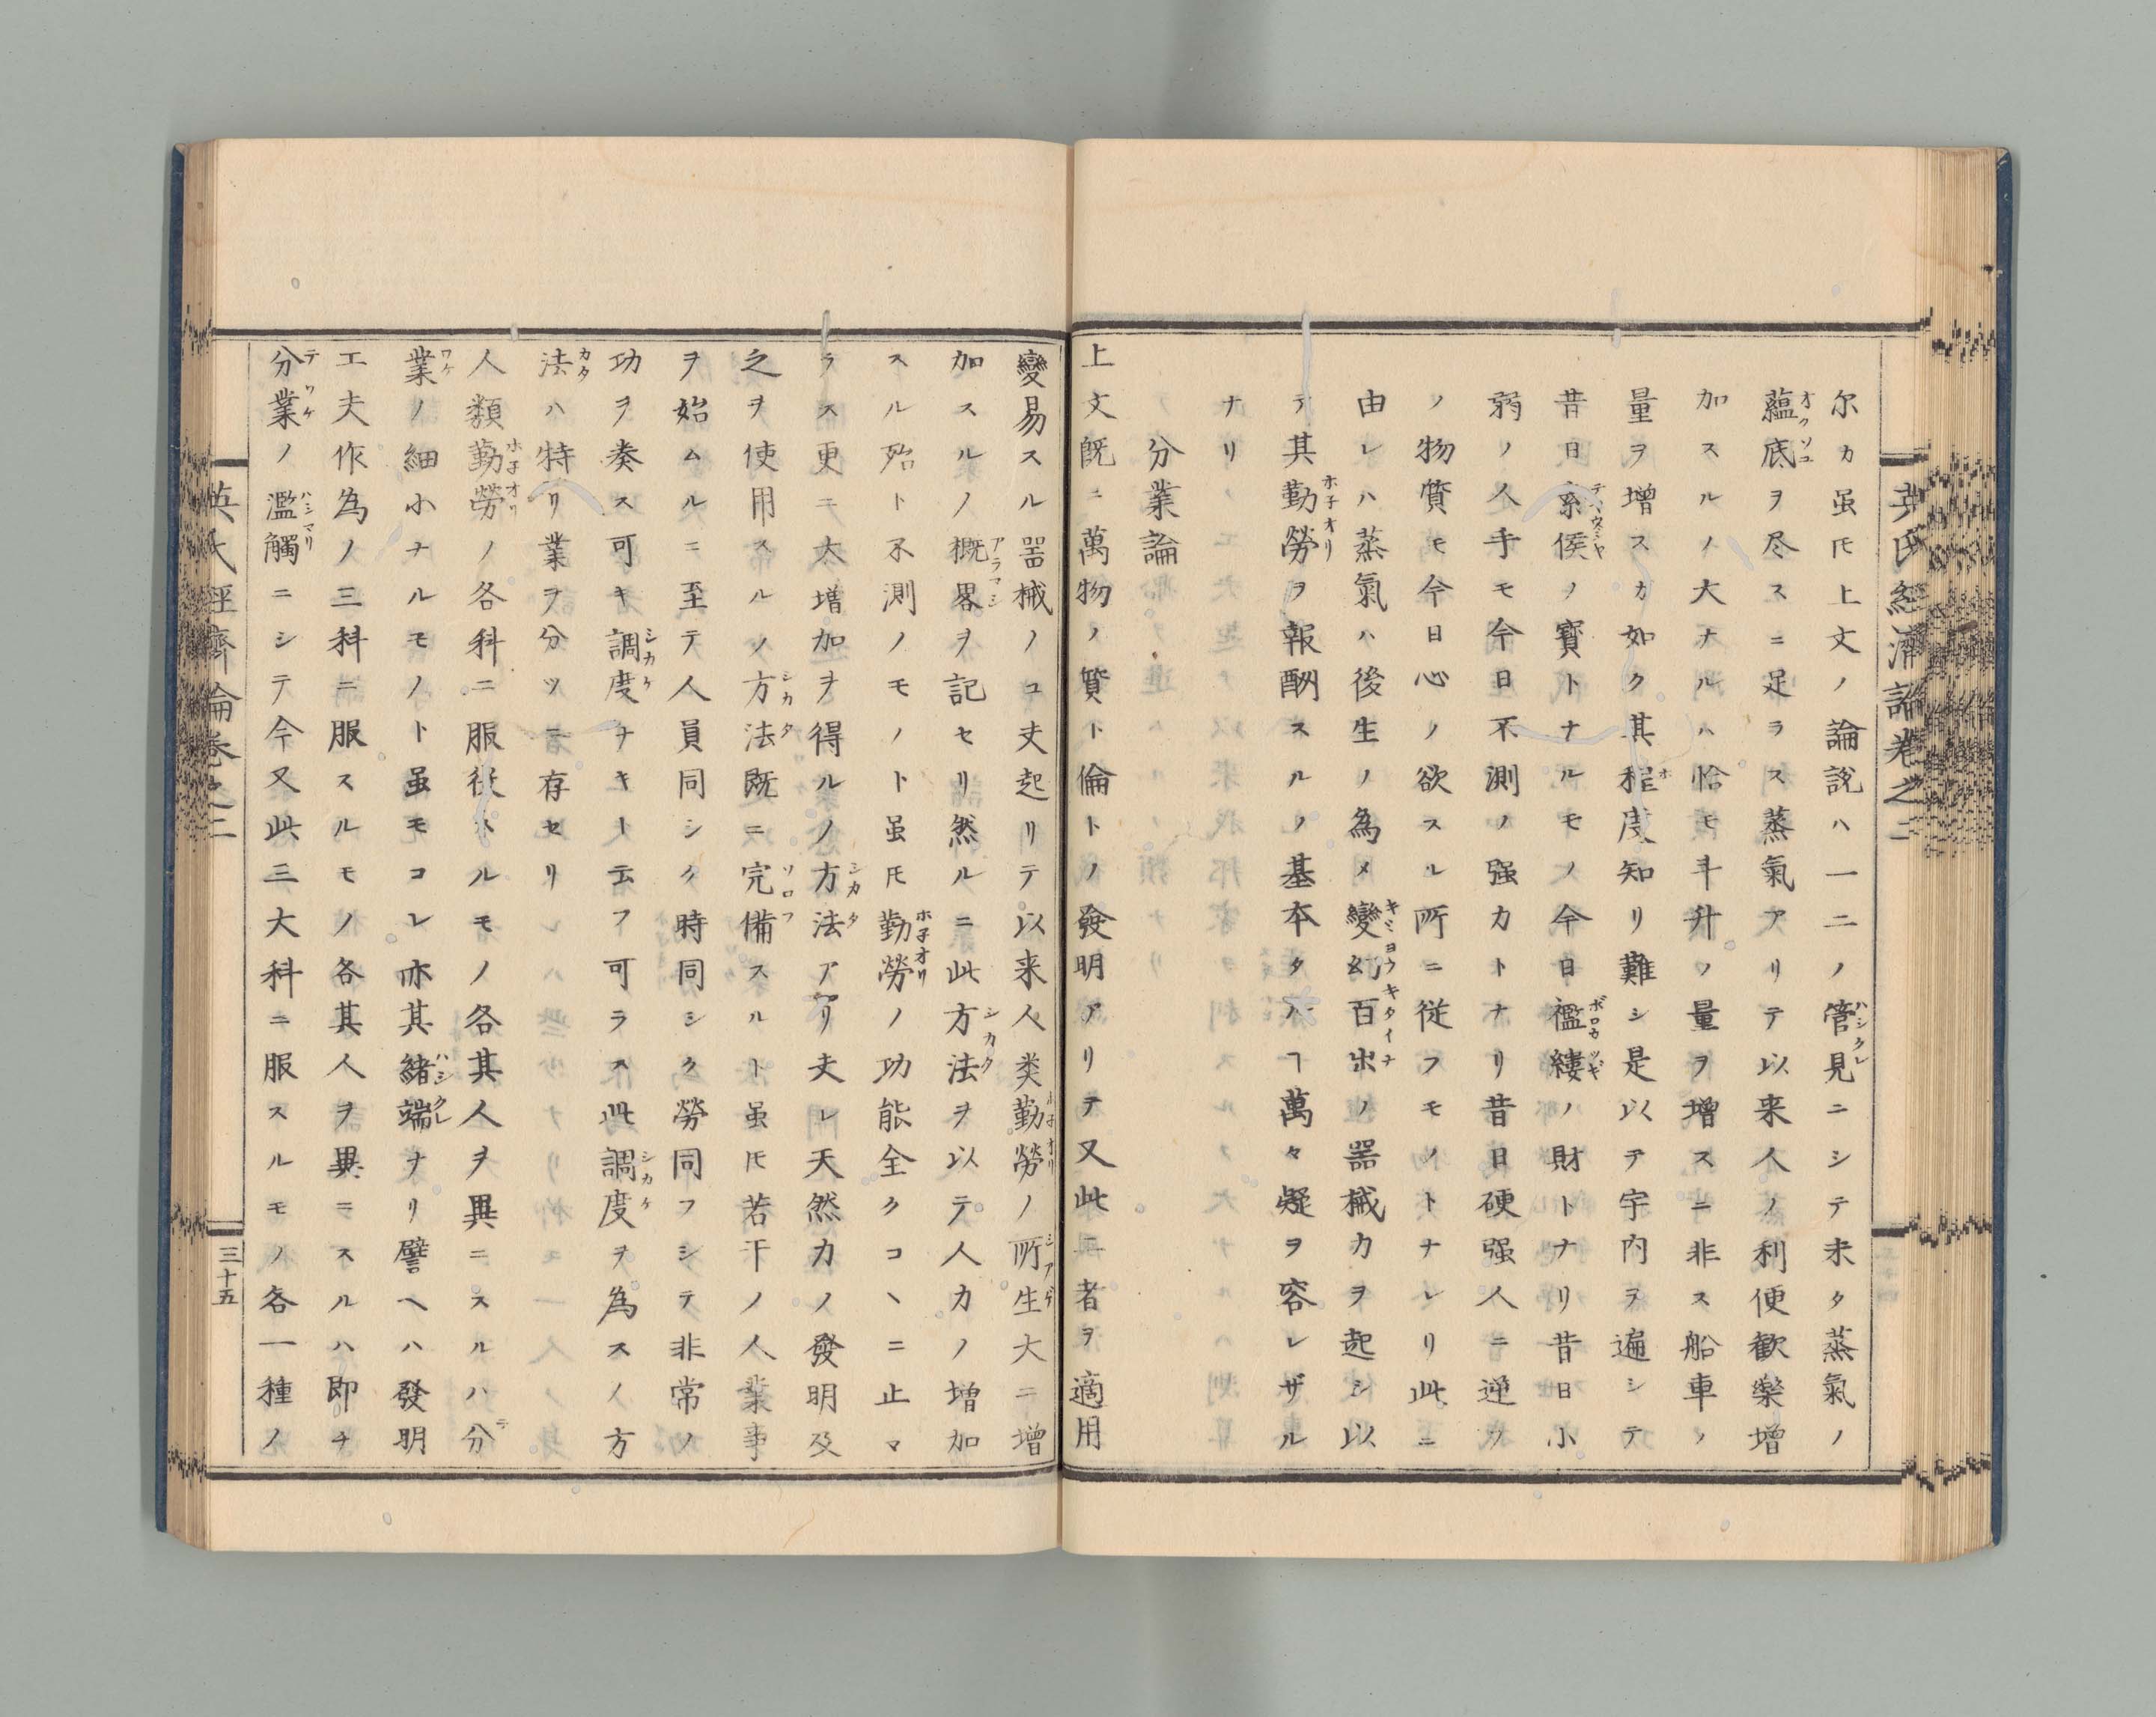 英氏経濟論巻之二
尔カ虽𪜈上文ノ論説ハ一二ノ管見ニシテ未タ蒸氣ノ
蘊底ヲ尽スニ足ラス蒸氣アリテ以来人ノ利便歓樂増
加スルノ大ナルハ恰モ斗升ノ量ヲ増スニ非ス船車ノ
量ヲ増スカ如ク其程度知リ難シ是以テ宇内ヲ遍シテ
昔日系侯ノ寳トナルモノ今日襤縷ノ財トナリ昔日小
弱ノ人手モ今日不測ノ强力トナリ昔日硬强人ニ逆フ
ノ物質モ今日心ノ欲スル所ニ従フモノトナレリ此ニ
由レハ蒸氣ハ後生ノ為メ變幻百出ノ器械力ヲ起シ以
テ其勤勞ヲ報酬スルノ基本タルヿ萬々疑ヲ容レザル
ナリ
分業論
上文既ニ萬物ノ質ト倫トノ發明アリテ又此二者ヲ適用
變易スル噐械ノユ丈起リテ以来人类勤勞ノ所生大ニ増
加スルノ概畧ヲ記セリ然ルニ此方法ヲ以テ人力ノ増加
スル殆ト不測ノモノト虽𪜈勤勞ノ功能全クコヽニ止マ
ラス更ニ大増加ヲ得ルノ方法アリ夫レ天然力ノ發明及
之ヲ使用スルノ方法既ニ完備スルト虽𪜈若干ノ人業事
ヲ始ムルニ至テ人員同シク時同シク勞同フシテ非常ノ
功ヲ奏ス可キ調度ナキト云フ可ラス此調度ヲ為スノ方
法ハ特リ業ヲ分ツニ存セリ
人類勤勞ノ各科ニ服従スルモノ各其人ヲ異ニスルハ分
業ノ細小ナルモノト虽モコレ亦其緒端ナリ譬ヘハ發明
工夫作為ノ三科ニ服スルモノ各其人ヲ異ニスルハ即チ
分業ノ濫觸ニシテ今又此三大科ニ服スルモノ各一種ノ
英氏經濟論巻之三
三十五